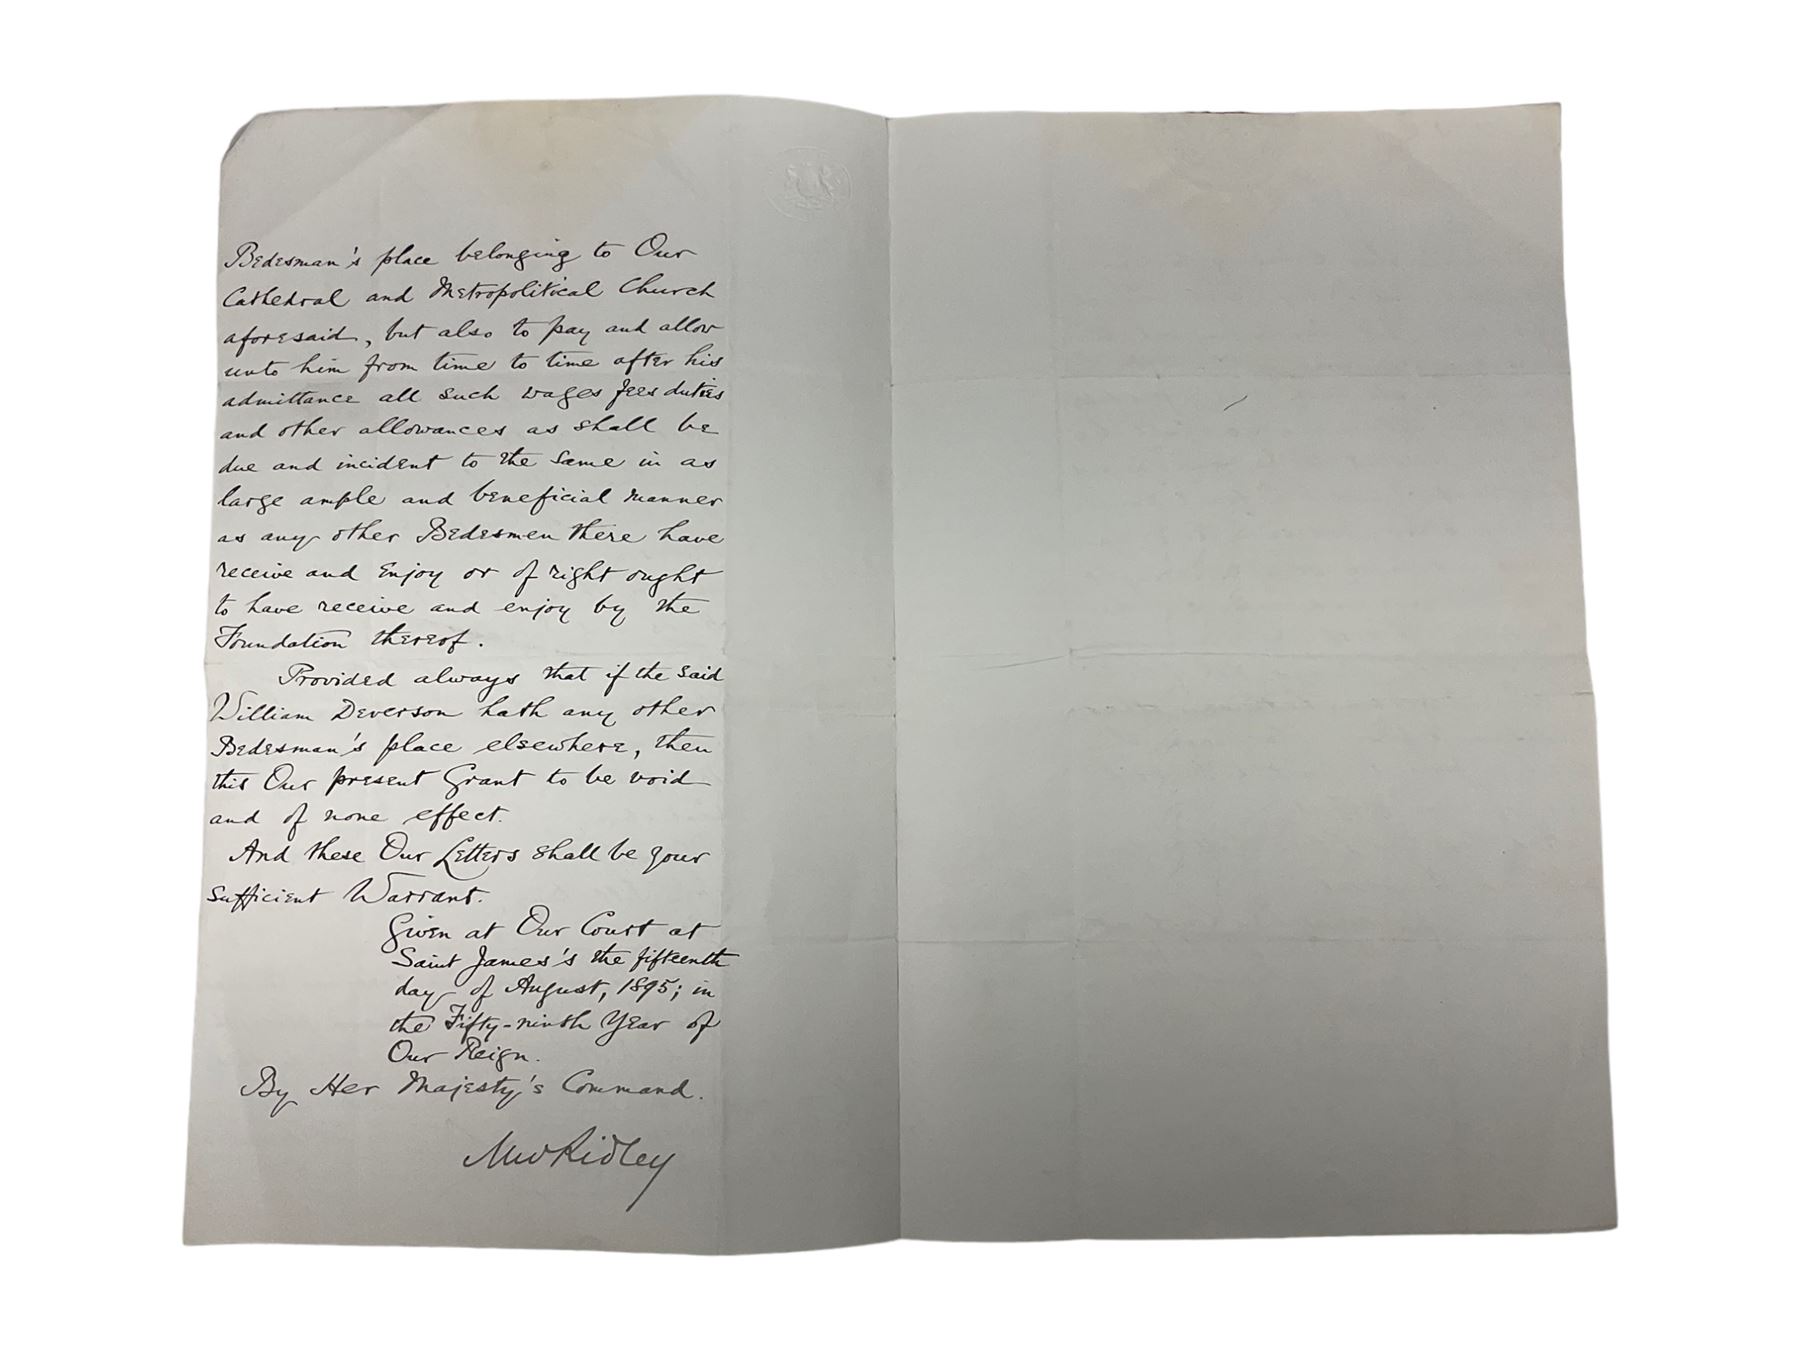 Bedesman's place belonging to Our
Cathedral and Metropolitical Church
aforesaid, but also to pay and allow
unto him from time to time after his
admittance all such wages fees duties
and other allowances as shall be
due and incident to the same in as
large ample and beneficial manner
as any other Bedesmen there have
receive and enjoy or of right ought
to have receive and enjoy by the
Foundation thereof.
Provided always that if the said
William Deverson hath any other
Bedesman's place elsewhere, then
this Our present Grant to be void
and of none effect.
And these Our Letters shall be your
sufficient Warrant.
Given at Our Court at
Saint James's the fifteenth
day of August, 1895; in
the Fifty-ninth Year of
Our Reign.
By Her Majesty's Command.
MWRidley